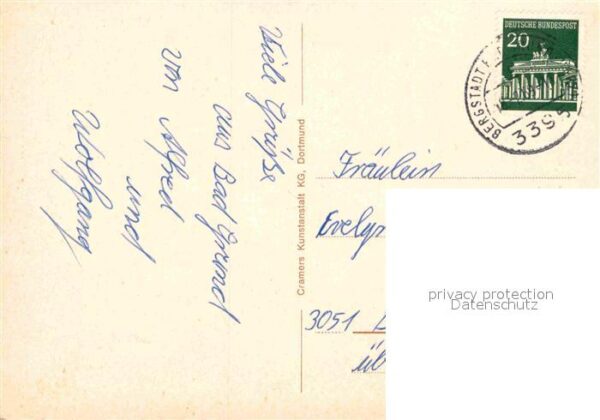 Viele Grüße
aus Bad Grund
von Alfred
und
Wolfgang
Cramers Kunstanstalt KG, Dortmund
DEUTSCHE BUNDESPOST
20
BERGSTADT
Fräulein
3051
üb
privacy protection
Datenschutz